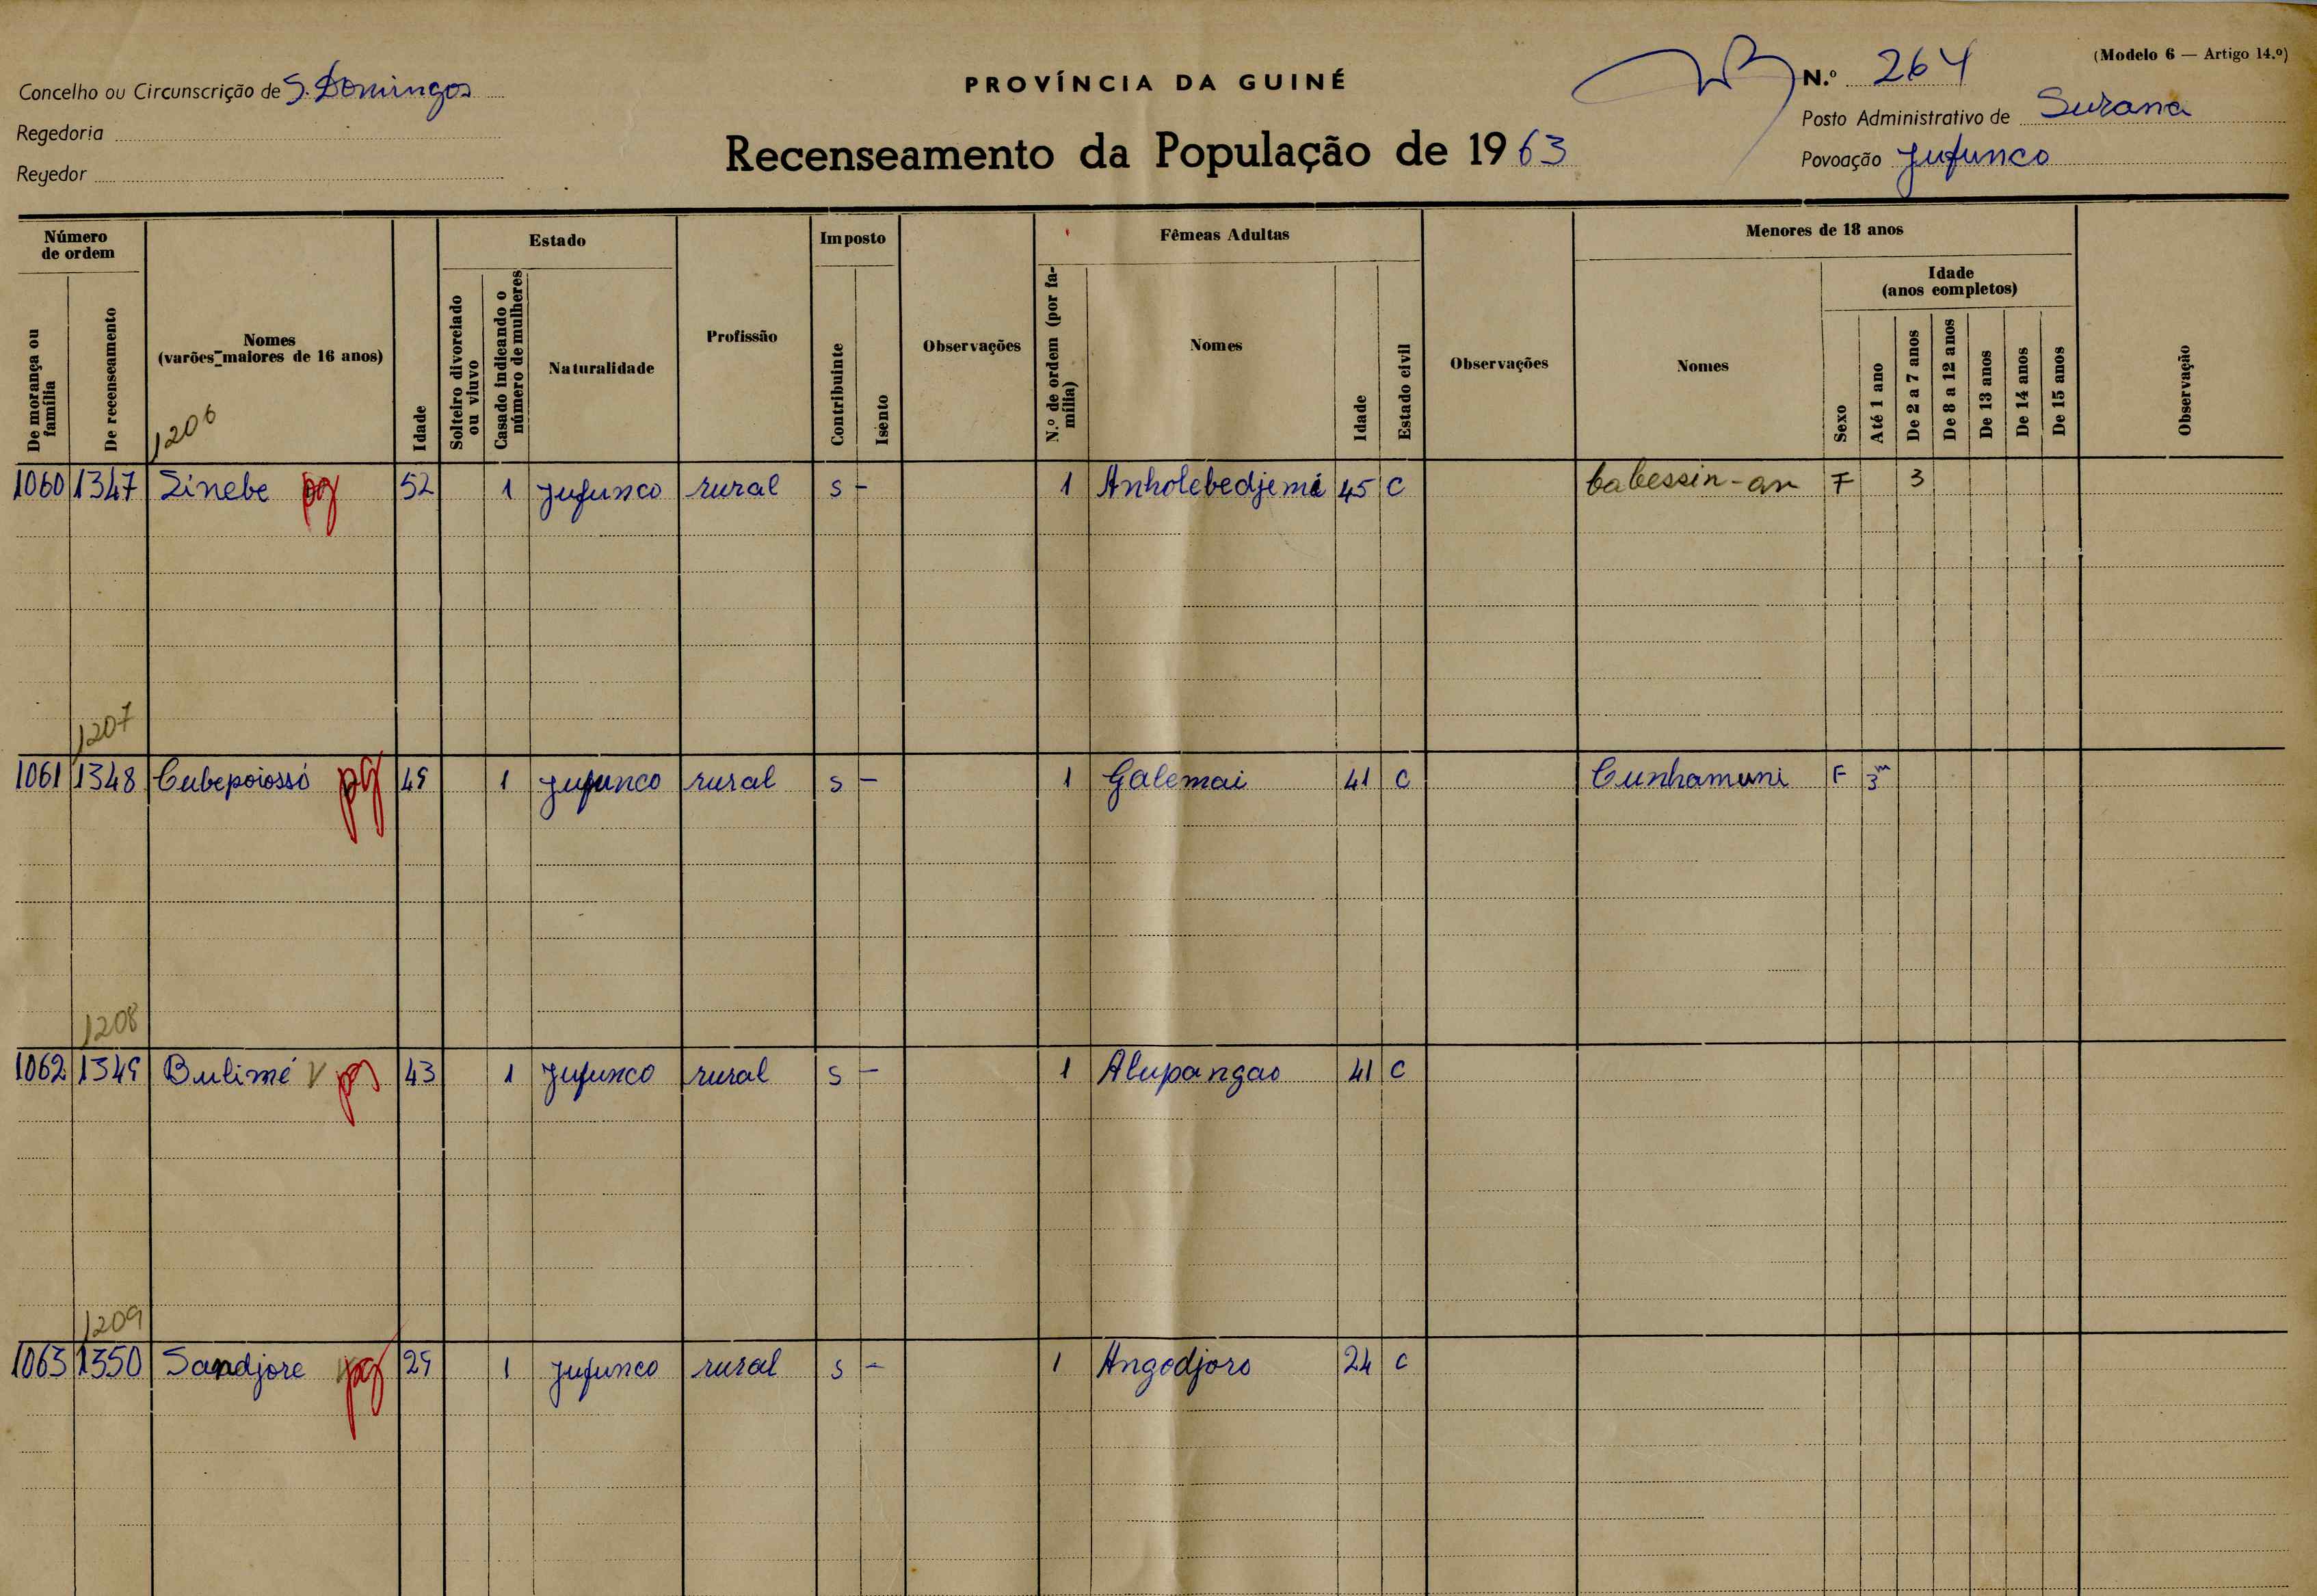 (Modelo 6 — Artigo 14.º)
PROVÍNCIA DA GUINÉ
N.º 264
Concelho ou Circunscrição de S. Domingos
Posto Administrativo de Surana
Regedoria
Recenseamento da População de 1963
Povoação Jufunco
Regedor
Número de ordem
De morança ou família
De recenseamento
Nomes
(varões maiores de 16 anos)
Idade
Estado
Solteiro divorciado ou viuvo
Casado indicando o número de mulheres
Naturalidade
Profissão
Imposto
Contribuinte
Isento
Observações
Fêmeas Adultas
N.º de ordem (por família)
Nomes
Idade
Estado civil
Observações
Menores de 18 anos
Nomes
Sexo
Idade
(anos completos)
Até 1 ano
De 2 a 7 anos
De 8 a 12 anos
De 13 anos
De 14 anos
De 15 anos
Observação
1206
1060 1347 Sinebe pg 52 1 Jufunco rural S - 1 Anholebedjemé 45 C Cabessin-an F 3
1207
1061 1348 Cubepoiossó pg 49 1 Jufunco rural S - 1 Galemai 41 C Cunhamuni F 3m
1208
1062 1349 Bulimé V pg 43 1 Jufunco rural S - 1 Alupangao 41 C
1209
1063 1350 Sandjore V pg 29 1 Jufunco rural S - 1 Angodjoro 24 C